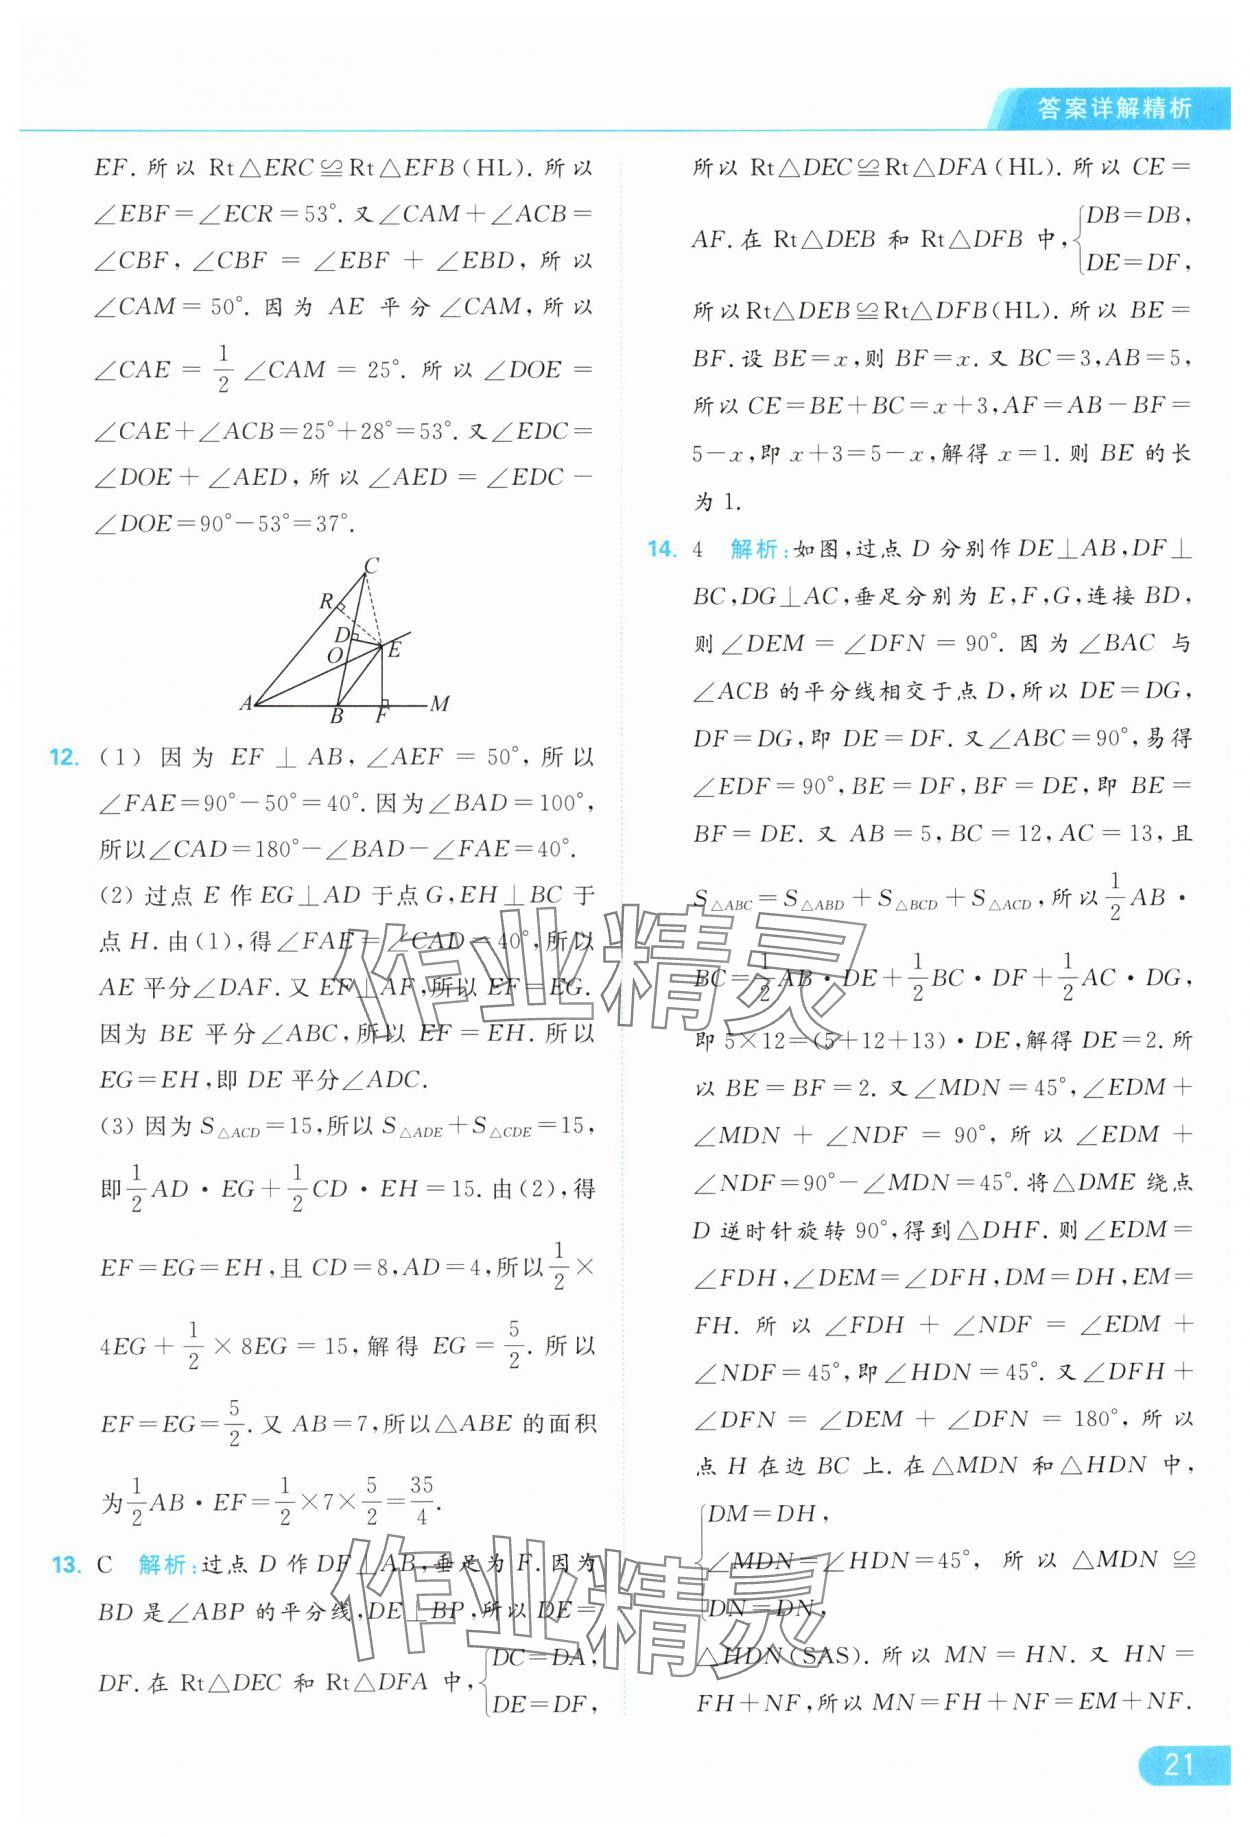 答案详解精析
EF.所以 Rt△ERC≌Rt△EFB(HL).所以
∠EBF=∠ECR=53°.又∠CAM+∠ACB=
∠CBF,∠CBF = ∠EBF + ∠EBD,所以
∠CAM=50°.因为 AE 平分∠CAM,所以
∠CAE = 1/2 ∠CAM = 25°.所以∠DOE =
∠CAE+∠ACB=25°+28°=53°.又∠EDC=
∠DOE+∠AED,所以∠AED=∠EDC-
∠DOE=90°-53°=37°.
C
R
D
O
E
A
B
F
M
12. (1) 因为 EF⊥AB,∠AEF=50°,所以
∠FAE=90°-50°=40°.因为∠BAD=100°,
所以∠CAD=180°-∠BAD-∠FAE=40°.
(2) 过点 E 作 EG⊥AD 于点 G,EH⊥BC 于
点 H.由(1),得∠FAE=∠CAD=40°,所以
AE 平分∠DAF.又 EF⊥AF,所以 EF=EG.
因为 BE 平分∠ABC,所以 EF=EH.所以
EG=EH,即 DE 平分∠ADC.
(3) 因为 S△ACD=15,所以 S△ADE+S△CDE=15,
即1/2AD·EG+1/2CD·EH=15.由(2),得
EF=EG=EH,且 CD=8,AD=4,所以1/2×
4EG+1/2×8EG=15,解得 EG=5/2.所以
EF=EG=5/2.又 AB=7,所以△ABE 的面积
为1/2AB·EF=1/2×7×5/2=35/4.
13. C 解析:过点 D 作 DF⊥AB,垂足为 F.因为
BD 是∠ABP 的平分线,DE⊥BP,所以 DE=
DF.在 Rt△DEC 和 Rt△DFA 中,{DC=DA,
DE=DF,
所以 Rt△DEC≌Rt△DFA(HL).所以 CE=
AF.在 Rt△DEB 和 Rt△DFB 中,{DB=DB,
DE=DF,
所以Rt△DEB≌Rt△DFB(HL).所以 BE=
BF.设 BE=x,则 BF=x.又 BC=3,AB=5,
所以 CE=BE+BC=x+3,AF=AB-BF=
5-x,即 x+3=5-x,解得 x=1.则 BE 的长
为 1.
14. 4 解析:如图,过点 D 分别作 DE⊥AB,DF⊥
BC,DG⊥AC,垂足分别为 E,F,G,连接 BD,
则∠DEM=∠DFN=90°.因为∠BAC 与
∠ACB 的平分线相交于点 D,所以 DE=DG,
DF=DG,即 DE=DF.又∠ABC=90°,易得
∠EDF=90°,BE=DF,BF=DE,即 BE=
BF=DE.又 AB=5,BC=12,AC=13,且
S△ABC=S△ABD+S△BCD+S△ACD,所以1/2AB·
BC=1/2AB·DE+1/2BC·DF+1/2AC·DG,
即 5×12=(5+12+13)·DE,解得 DE=2.所
以 BE=BF=2.又∠MDN=45°,∠EDM+
∠MDN+∠NDF=90°,所以∠EDM+
∠NDF=90°-∠MDN=45°.将△DME 绕点
D 逆时针旋转 90°,得到△DHF.则∠EDM=
∠FDH,∠DEM=∠DFH,DM=DH,EM=
FH.所以∠FDH+∠NDF=∠EDM+
∠NDF=45°,即∠HDN=45°.又∠DFH+
∠DFN=∠DEM+∠DFN=180°,所以
点 H 在边 BC 上.在△MDN 和△HDN 中,
{DM=DH,
∠MDN=∠HDN=45°, 所以△MDN≌
DN=DN,
△HDN(SAS).所以 MN=HN.又 HN=
FH+NF,所以 MN=FH+NF=EM+NF.
作业精灵
作业精灵
21